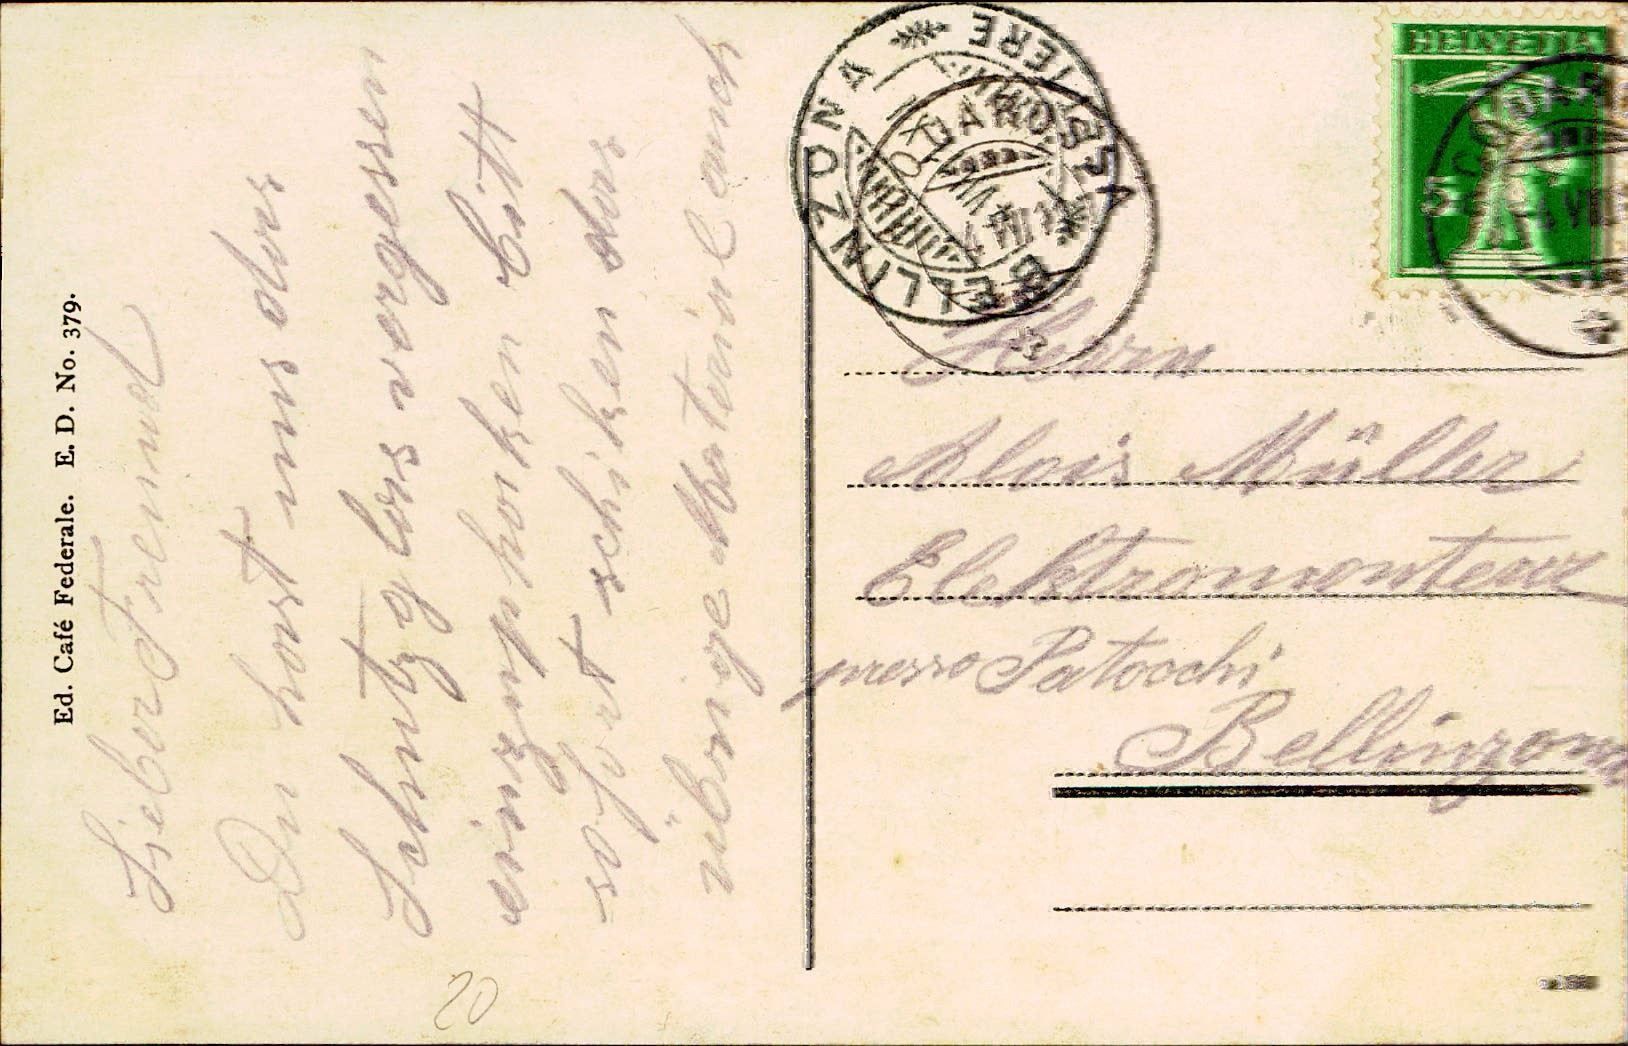 Ed. Café Federale. E. D. No. 379.
Lieber Freund
Du hast uns das
Schutzglas vergessen
einzupacken bitt
sofort schiken das
übrige Material auch
20
BELLINZONA
HELVETIA
5
Herrn
Alois Müller
Elektromonteur
presso Patocchi
Bellinzona